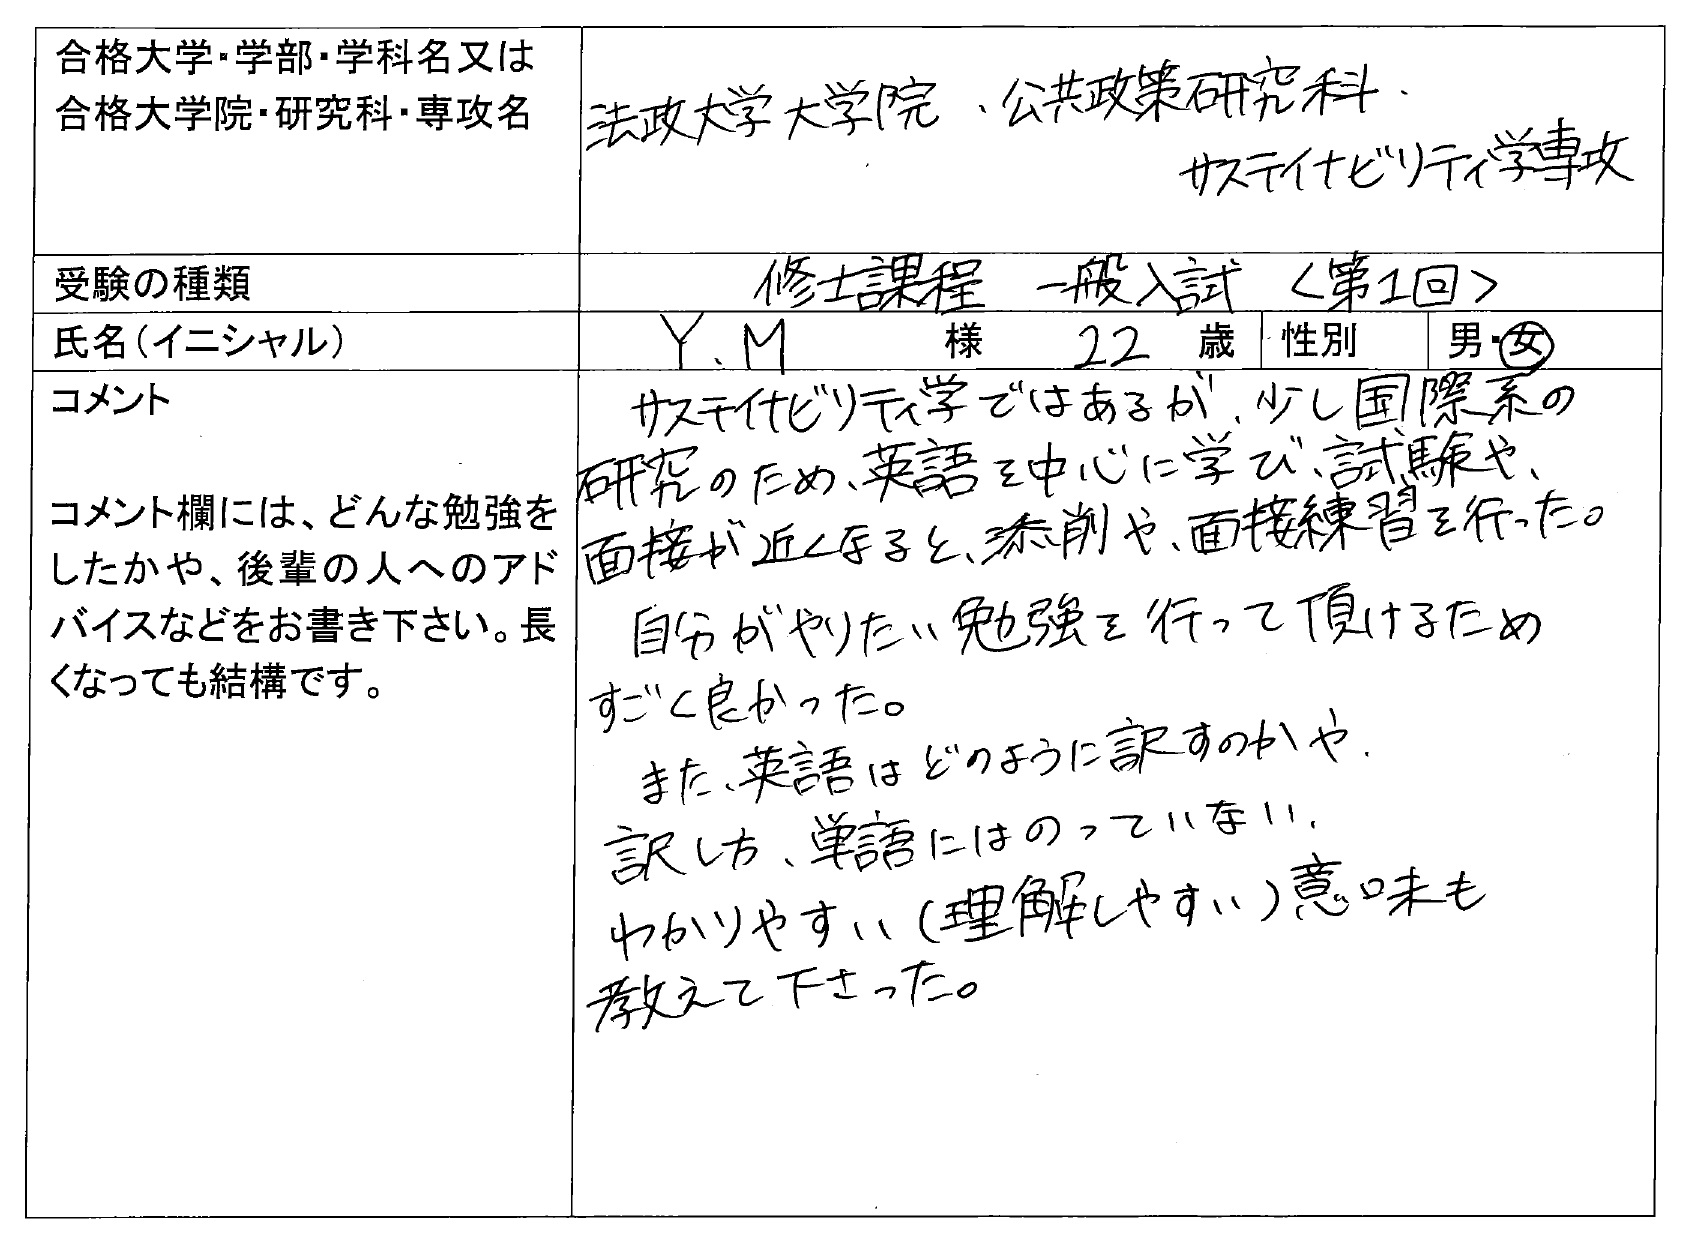 合格大学・学部・学科名又は
合格大学院・研究科・専攻名
法政大学大学院、公共政策研究科、
サステイナビリティ学専攻
受験の種類
修士課程 一般入試 <第1回>
氏名(イニシャル)
Y.M 様 22 歳 性別 男・女
コメント
コメント欄には、どんな勉強を
したかや、後輩の人へのアド
バイスなどをお書き下さい。長
くなっても結構です。
サステイナビリティ学ではあるが、少し国際系の
研究のため、英語を中心に学び、試験や、
面接が近くなると、添削や、面接練習を行った。
自分がやりたい勉強を行って頂けるため
すごく良かった。
また、英語はどのように訳すのかや、
訳し方、単語にはのっていない、
わかりやすい(理解しやすい)意味も
教えて下さった。